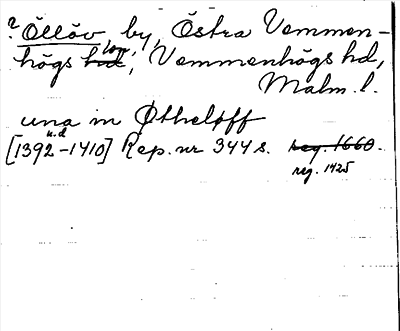 ? Öllöv, by, Östra Vemmen-
högs hd sn, Vemmenhögs hd,
Malm. l.
una in Øtheløff
u.d
[1392-1410] Rep. nr 344 s. reg. 1660.
reg. 1425